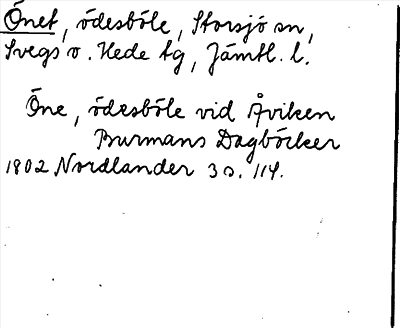 Önet, ödesböle, Storsjö sn,
Svegs o. Hede tg, Jämtl. l.
Öne, ödesböle vid Åviken
Burmans Dagböcker
1802 Nordlander 3 s. 114.